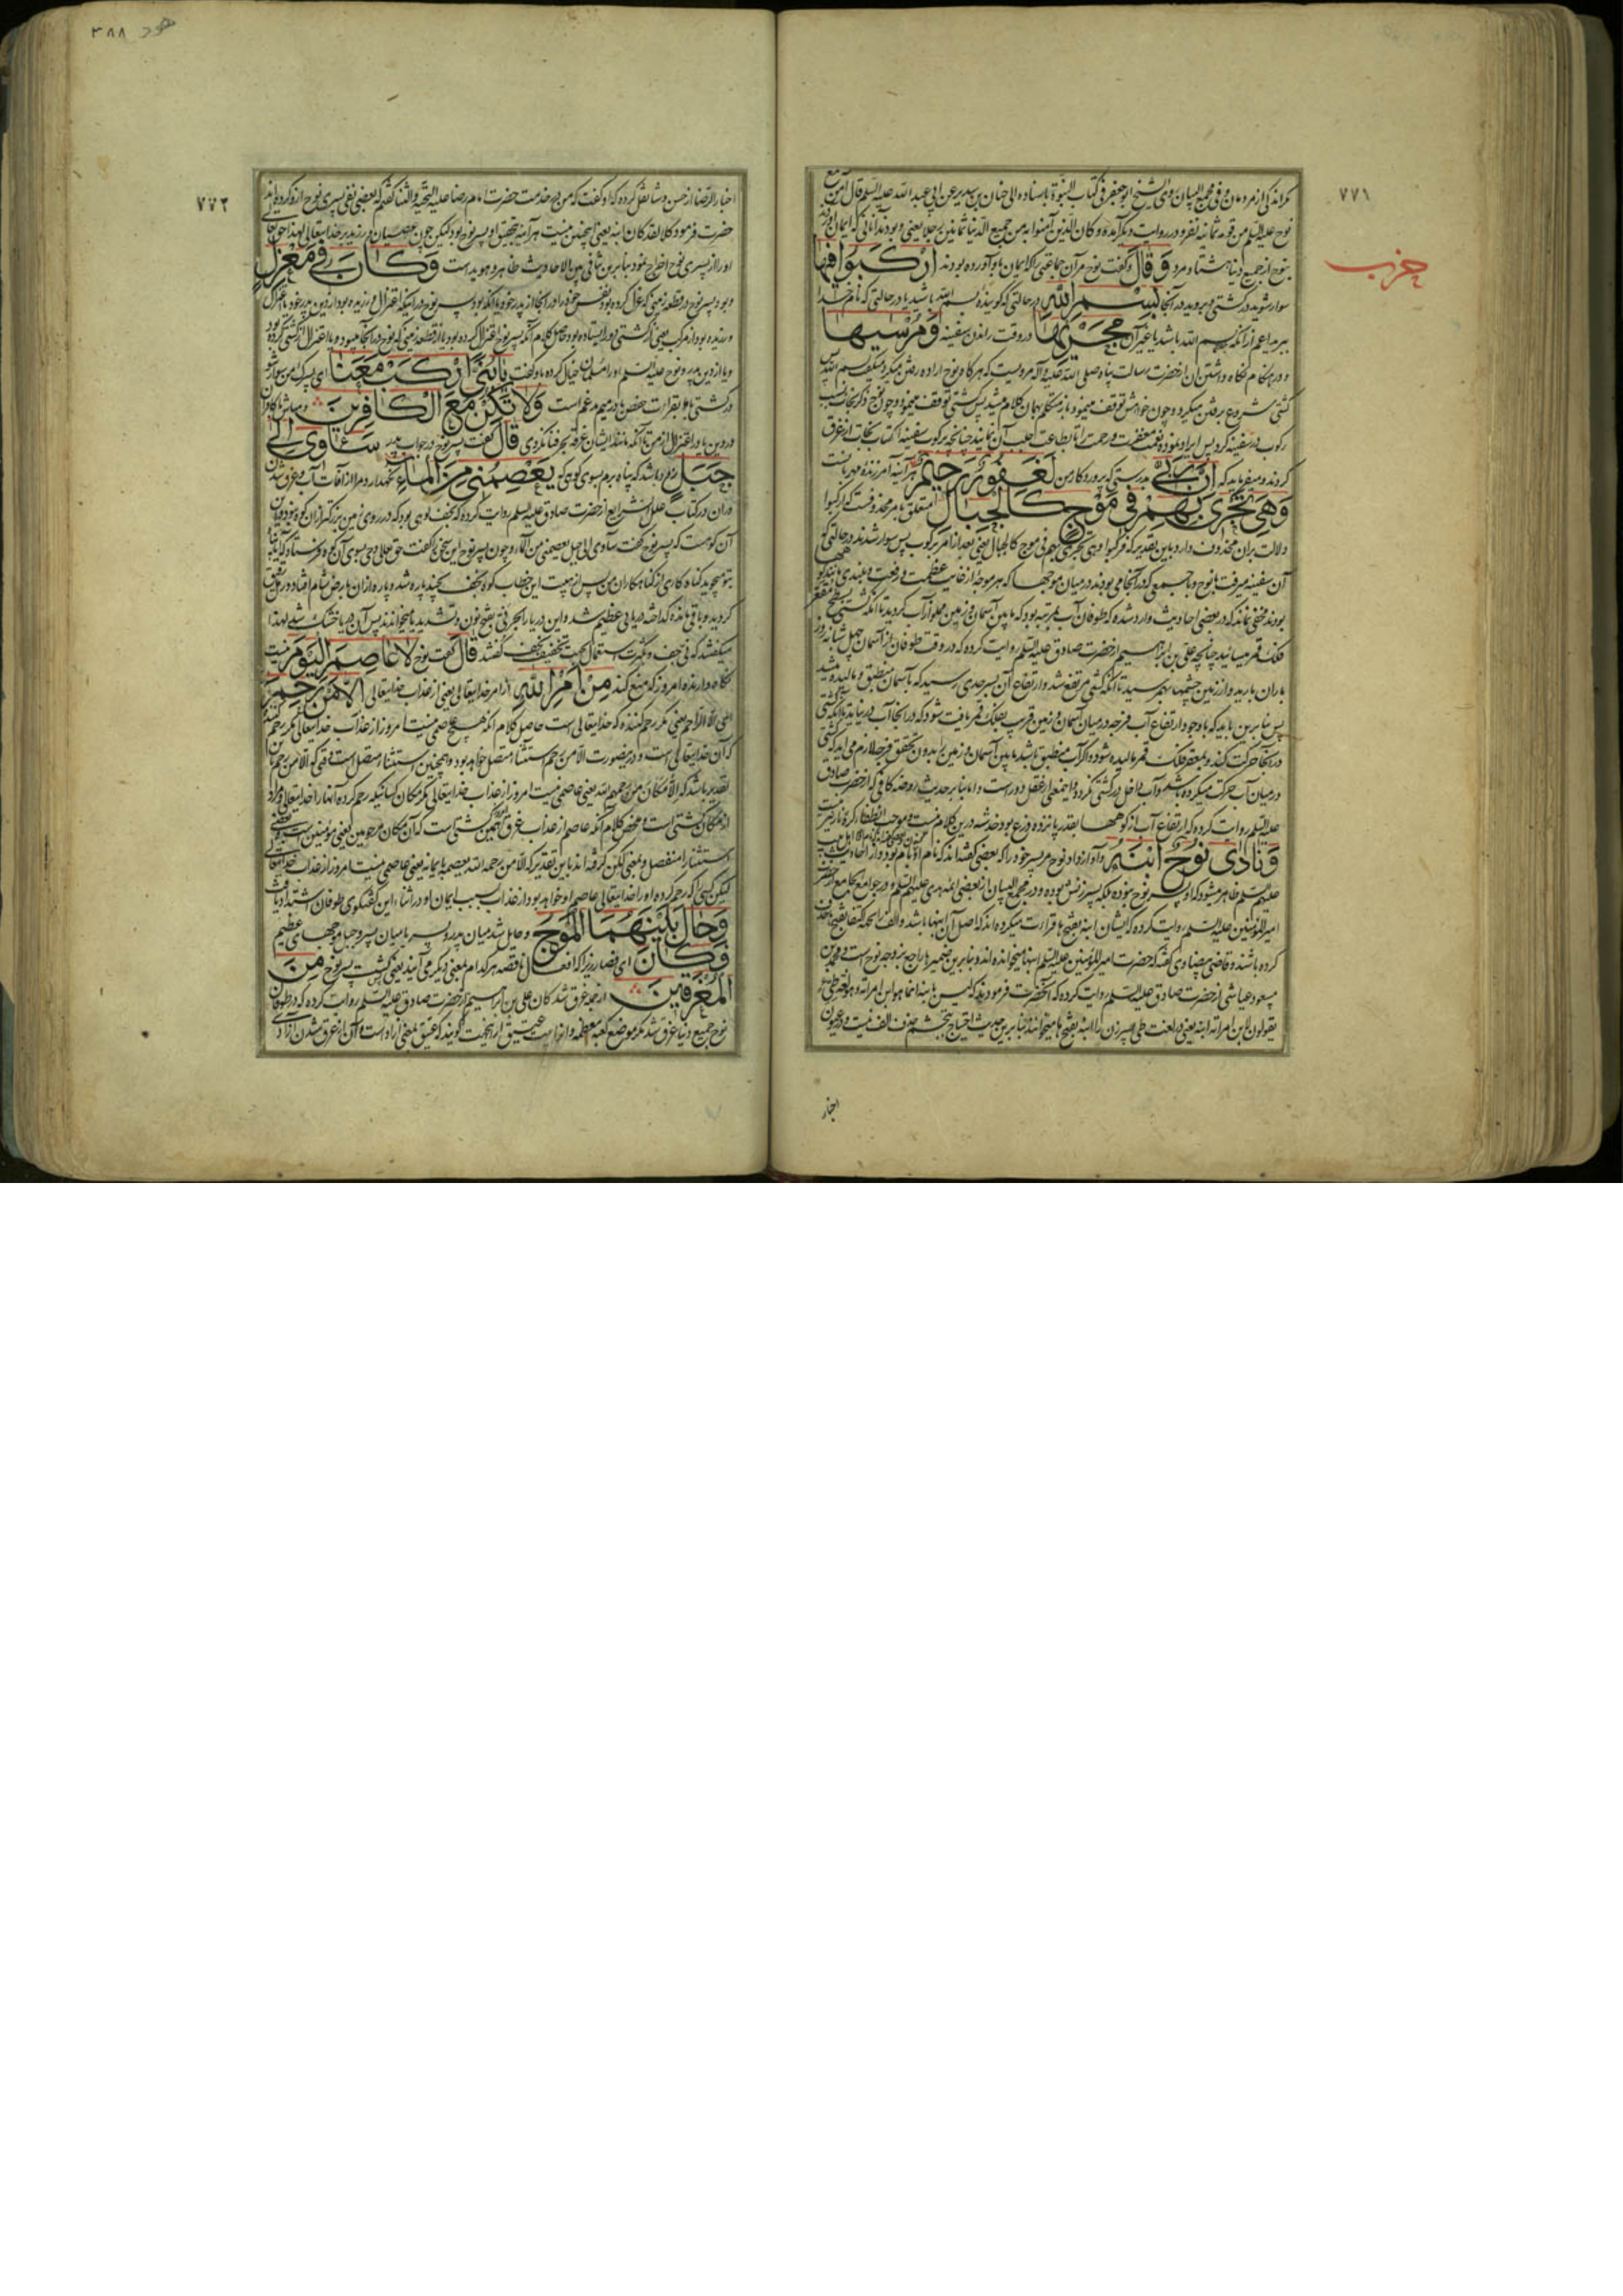 ٧٧١
حزب
مکر اندکی از مردمان و فی مجمع البیان روی الشیخ ابو جعفر فی کتاب النبوة باسناده الی حنان بن سدیر عن ابی عبد الله علیه السلم قال آمن مع
نوح علیه السلم من قومه ثمانیه نفر و در روایت دیگر آمده و کان الذین آمنوا به من جمیع الدنیا ثمانین رجلا یعنی و بودند آنانی که ایمان آوردند
بنوح از جمیع دنیا هشتاد مرد وَقَالَ و گفت نوح مر آن جماعتی را که ایمان باو آورده بودند ارْكَبُوا فِيهَا
سوار شوید در کشتی و بروید در آنجا بِسْمِ اللهِ در حالتی که گوینده بسم الله باشید یا در حالتی که نام خدا
ببرید اعم از آنکه بسم الله باشد یا غیر آن مَجْرٰىهَا در وقت راندن سفینه وَمُرْسٰيهَا
و در هنگام نگاه داشتن آن از حضرت رسالت پناه صلی الله علیه و آله مرویست که هر گاه نوح اراده رفتن میکرد میگفت بسم الله پس
کشتی شروع برفتن میکرد و چون خواهش توقف مینمود باز متکلم بهمان کلام میشد پس کشتی توقف مینمود و چون نوح ذکر نجات بسبب
رکوب در سفینه کرد پس ایراد نمود نعمت مغفرت و رحمت را تا بطاعت جلب آن نمایند چنانچه برکوب سفینه اکتساب نجات از غرق
کردند و میفرماید که اِنَّ رَبِّي بدرستی که پروردگار من لَغَفُورٌ رَحِيمٌ هر آینه آمرزنده مهربانست
وَهِيَ تَجْرِي بِهِمْ فِي مَوْجٍ كَالْجِبَالِ متعلق بامر محذوفست که ارکبوا
دلالت بر آن محذوف دارد باین تقدیر که فرکبوا و هی تجری بهم فی موج کالجبال یعنی بعد از امر برکوب پس سوار شدند در حالتی که
آن سفینه میرفت با نوح و با جمعی که در آنجا می بودند در میان موجها که هر موجه از غایت عظمت و رفعت و بلندی مانند کوه
بودند مخفی نماند که در بعضی احادیث وارد شده که طوفان آب بمرتبه بود که ما بین آسمان و زمین مملو از آب گردید تا آنکه کشتی بسطح مقعر
فلک قمر میسائید چنانچه علی بن ابراهیم از حضرت صادق علیه السلم روایت کرده که در وقت طوفان از آسمان چهل شبانه روز
باران بارید و از زمین چشمها بهم رسید تا آنکه کشتی مرتفع شد و ارتفاع آن بسر حدی رسید که بآسمان منطبق و مالیده میشد
پس بنا برین باید که با وجود ارتفاع آب فرجه در میان آسمان و زمین قریب بفلک قمر یافت شود که در آنجا آب در نیاید تا آنکه کشتی
در آنجا حرکت کند و بمقعر فلک قمر مالیده شود
در میان آب حرکت میکرده باشد و آب داخل در کشتی نگردد و این معنی از عقل دور است و اما بنا بر حدیث روضه کافی که از حضرت صادق
علیه السلم روایت کرده که ارتفاع آب از کوهها بقدر پانزده ذرع بود خدشه درین کلام نیست
وَنَادٰى نُوحٌ ابْنَهُ و آواز داد نوح مر پسر خود را که بعضی گفته اند که نام او یام بود و از احادیث
علیهم السلم ظاهر میشود که او پسر نوح نبوده بلکه پسر زنش بوده و در مجمع البیان از بعضی ائمه هدی علیهم السلم و در جوامع الجامع از حضرت
امیر المؤمنین علیه السلم روایت کرده که ایشان ابنه بفتح ها قرائت میکرده اند که اصل آن ابنها باشد و الف را بجهة تخفیف بفتحه حذف
کرده باشند و قاضی بیضاوی گفته که حضرت امیر المؤمنین علیه السلم ابنها میخوانده اند و بنا برین ضمیر ها راجع بزوجه نوح است و محمد بن
مسعود عیاشی از حضرت صادق علیه السلم روایت کرده که آنحضرت فرمودند که لیس بابنه انما هو ابن امراته و هو لغة طی
یقولون لابن امراته ابنه یعنی در لغت طی پسر زن را ابنه بفتح ها میخوانند بنا برین حدیث احتیاج بتجشم حذف الف نیست و در عیون
اخبار
هود ٣٨٨
٧٧٢
اخبار الرضا از حسن وشا نقل کرده که او گفت که من در خدمت حضرت امام رضا علیه التحیة و الثنا گفتم که بعضی نفی پسری نوح ازو کرده اند
حضرت فرمود کلا لقد کان ابنه یعنی اینچنین نیست هر آینه بتحقیق او پسر نوح بود لیکن چون عصیان ورزید بر خدایتعالی لهذا حق تعالی
او را از پسری نوح اخراج نمود بنا برین تنافی بین الاحادیث ظاهر و هویداست وَكَانَ فِي مَعْزِلٍ
و بود پسر نوح در قطعه زمینی که عزل کرده بود نفس خود را در آنجا از پدر خود یا آنکه بود پسر نوح در آنکه اعتزال ورزیده بود از دین پدر خود یا عزل
ورزیده بود از مرکب یعنی از کشتی دور ایستاده بود حاصل کلام آنکه پسر نوح اعتزال کرده بود یا از قطعه زمینی که نوح در آنجا میبود و یا اعتزال از کشتی کرده بود
و یا از دین پدر و نوح علیه السلم او را مسلمان خیال کرده باو گفت يَا بُنَيَّ ارْكَبْ مَعَنَا ای پسرک من سوار شو
در کشتی با ما بقرائت حفص با در میم مدغم است وَلَا تَكُنْ مَعَ الْكَافِرِينَ و مباش با کافران
در دین یا در اعتزال از من تا آنکه مانند ایشان غرقه بحر فنا نگردی قَالَ گفت پسر نوح در جواب پدر سَاٰوِي اِلٰى
جَبَلٍ زود باشد که پناه برم بسوی کوهی که يَعْصِمُنِي مِنَ الْمَاءِ نگهدارد مرا از آفات آب و غرق شدن
در آن در کتاب علل الشرایع از حضرت صادق علیه السلم روایت کرده که نجف کوهی بود که در روی زمین بزرگتر از آن کوه نبود و این
آن کوهست که پسر نوح گفت سآوی الی جبل یعصمنی من الماء و چون پسر نوح این سخن را گفت حق تعالی وحی بسوی آن کوه فرستاد که آیا پناه
بتو میجوید گناه کاری از گناهکاران من پس از هیبت این خطاب کوه نجف بچند پاره شد و پاره از آن بارض شام افتاد و رمل دقیق
گردید و باقی مانده که اخذ دریای عظیم شد و این دریا را بحر نی بفتح نون و تشدید یا میخواندند پس آن دریا خشک شد لهذا
میگفتند که نی جف و بکثرت استعمال بجهت تخفیف نجف گفتند قَالَ گفت نوح لَا عَاصِمَ الْيَوْمَ نیست
نگاه دارنده امروز که منع کند مِنْ اَمْرِ اللهِ از امر خدایتعالی یعنی از عذاب خدایتعالی اِلَّا مَنْ رَحِمَ
ای الا الراحم یعنی مگر رحم کننده که خدایتعالی است حاصل کلام آنکه هیچ عاصمی نیست امروز از عذاب خدایتعالی مگر رحم کننده
که آن خدایتعالی است و درینصورت الا من رحم استثناء متصل خواهد بود و همچنین استثنا متصل است وقتی که الا من رحم باین
تقدیر باشد که الا مکان من رحمهم الله یعنی عاصمی نیست امروز از عذاب خدایتعالی مگر مکان کسانیکه رحم کرده آنها را خدایتعالی و مراد
از مکان کشتی است و محض کلام آنکه عاصم از عذاب غرق همین کشتی است که آن مکان مرحومین یعنی مؤمنین است و بعضی
استثنا را منفصل و بمعنی لکن گرفته اند باین تقدیر که الا من رحمه الله یعصمه بایمانه یعنی عاصمی نیست امروز از عذاب خدایتعالی
لیکن کسی که رحم کرده او را خدایتعالی عاصم او خواهد بود از عذاب بسبب ایمان او در اثناء این گفتگوی طوفان اشتداد یافت
وَحَالَ بَيْنَهُمَا الْمَوْجُ و حایل شد میان پدر و پسر یا میان پسر و جبل موجهای عظیم
فَكَانَ ای فصار زیرا که افعال ناقصه هر کدام بمعنی دیگری می آیند یعنی گشت پسر نوح مِنَ
الْمُغْرَقِينَ از جمله غرق شدکان علی بن ابراهیم از حضرت صادق علیه السلم روایت کرده که در طوفان
نوح جمیع دنیا غرق شد مگر موضع کعبه معظمه و از آنجهت عتیق گویند که عتیق بمعنی آزاد است و آن از غرق شدن آزاد